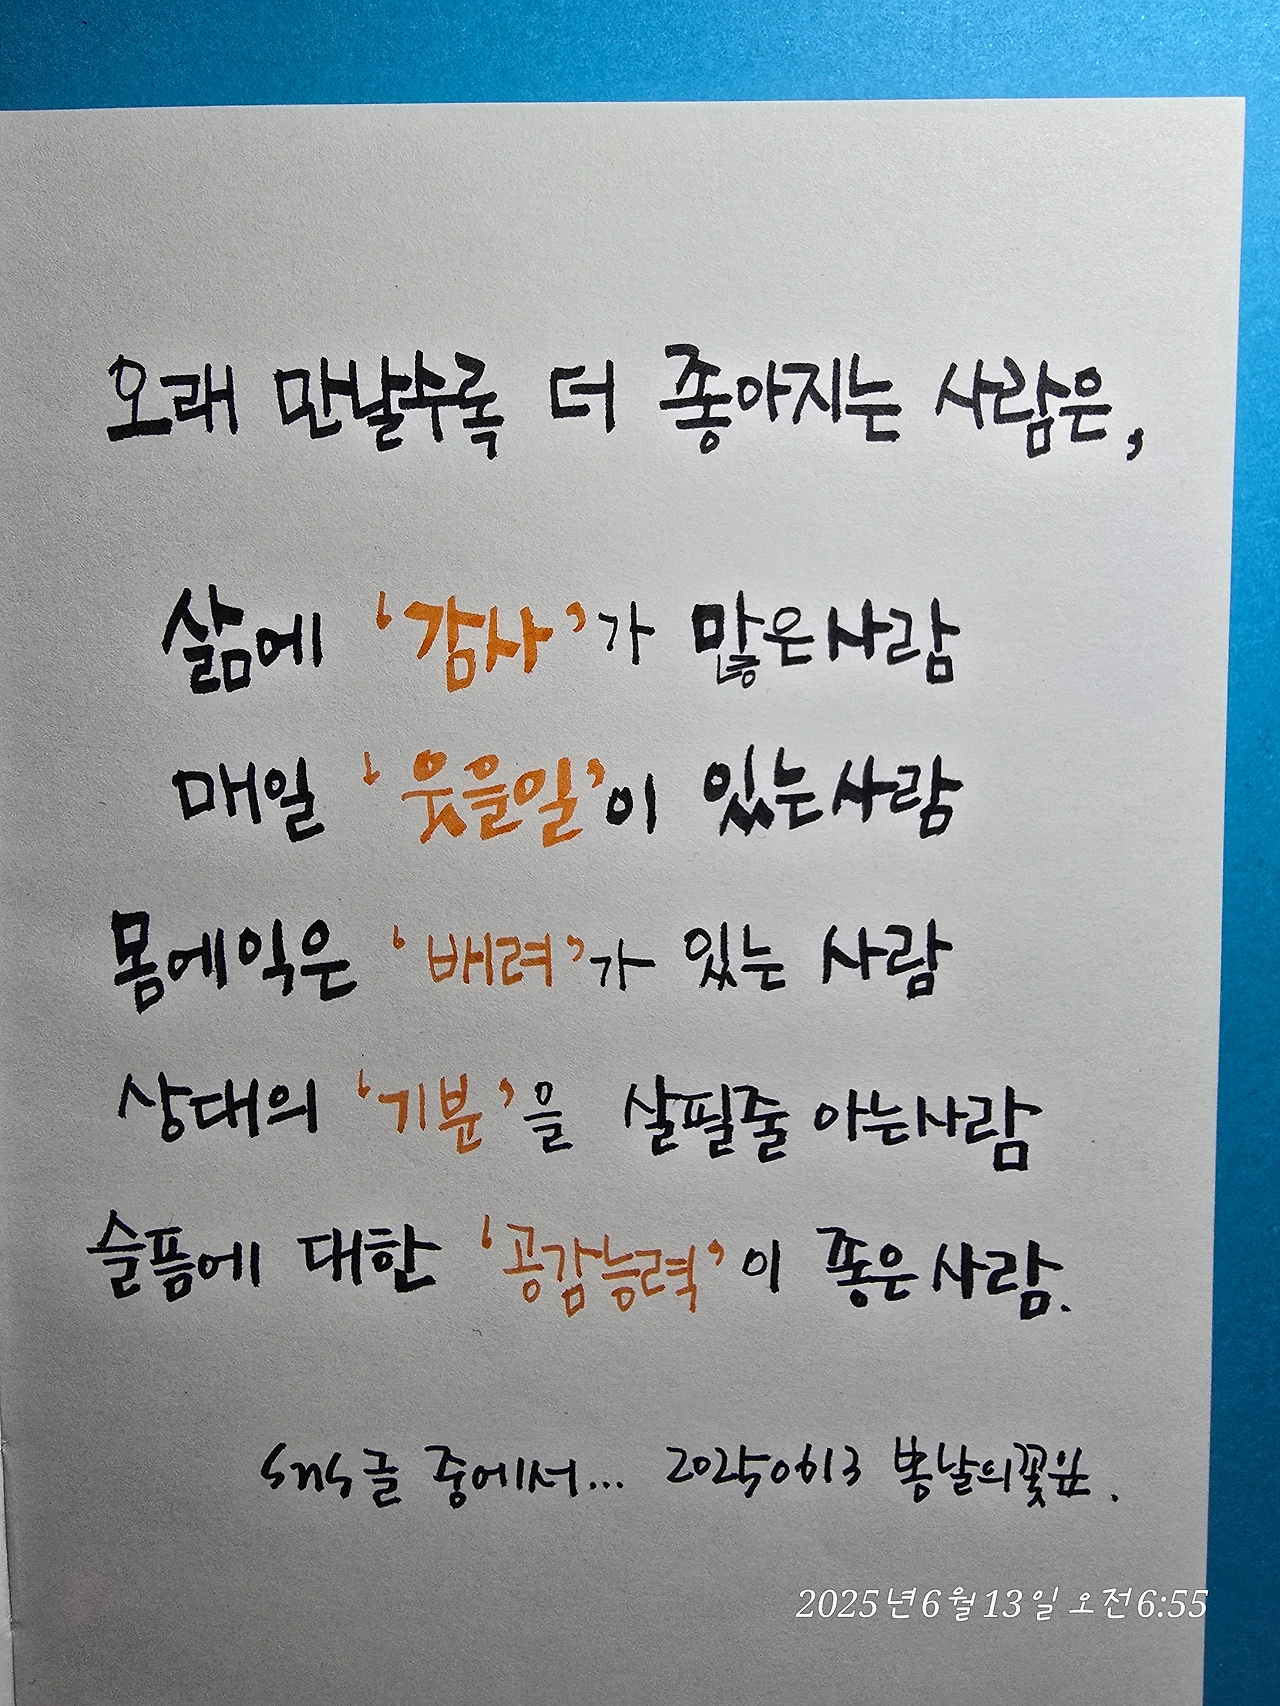 오래 만날수록 더 좋아지는 사람은,
삶에 '감사'가 많은사람
매일 '웃을일'이 있는사람
몸에익은 '배려'가 있는 사람
상대의 '기분'을 살필줄 아는사람
슬픔에 대한 '공감능력'이 좋은사람.
sns글 중에서... 20250613 봄날의꽃
2025년 6월 13일 오전 6:55